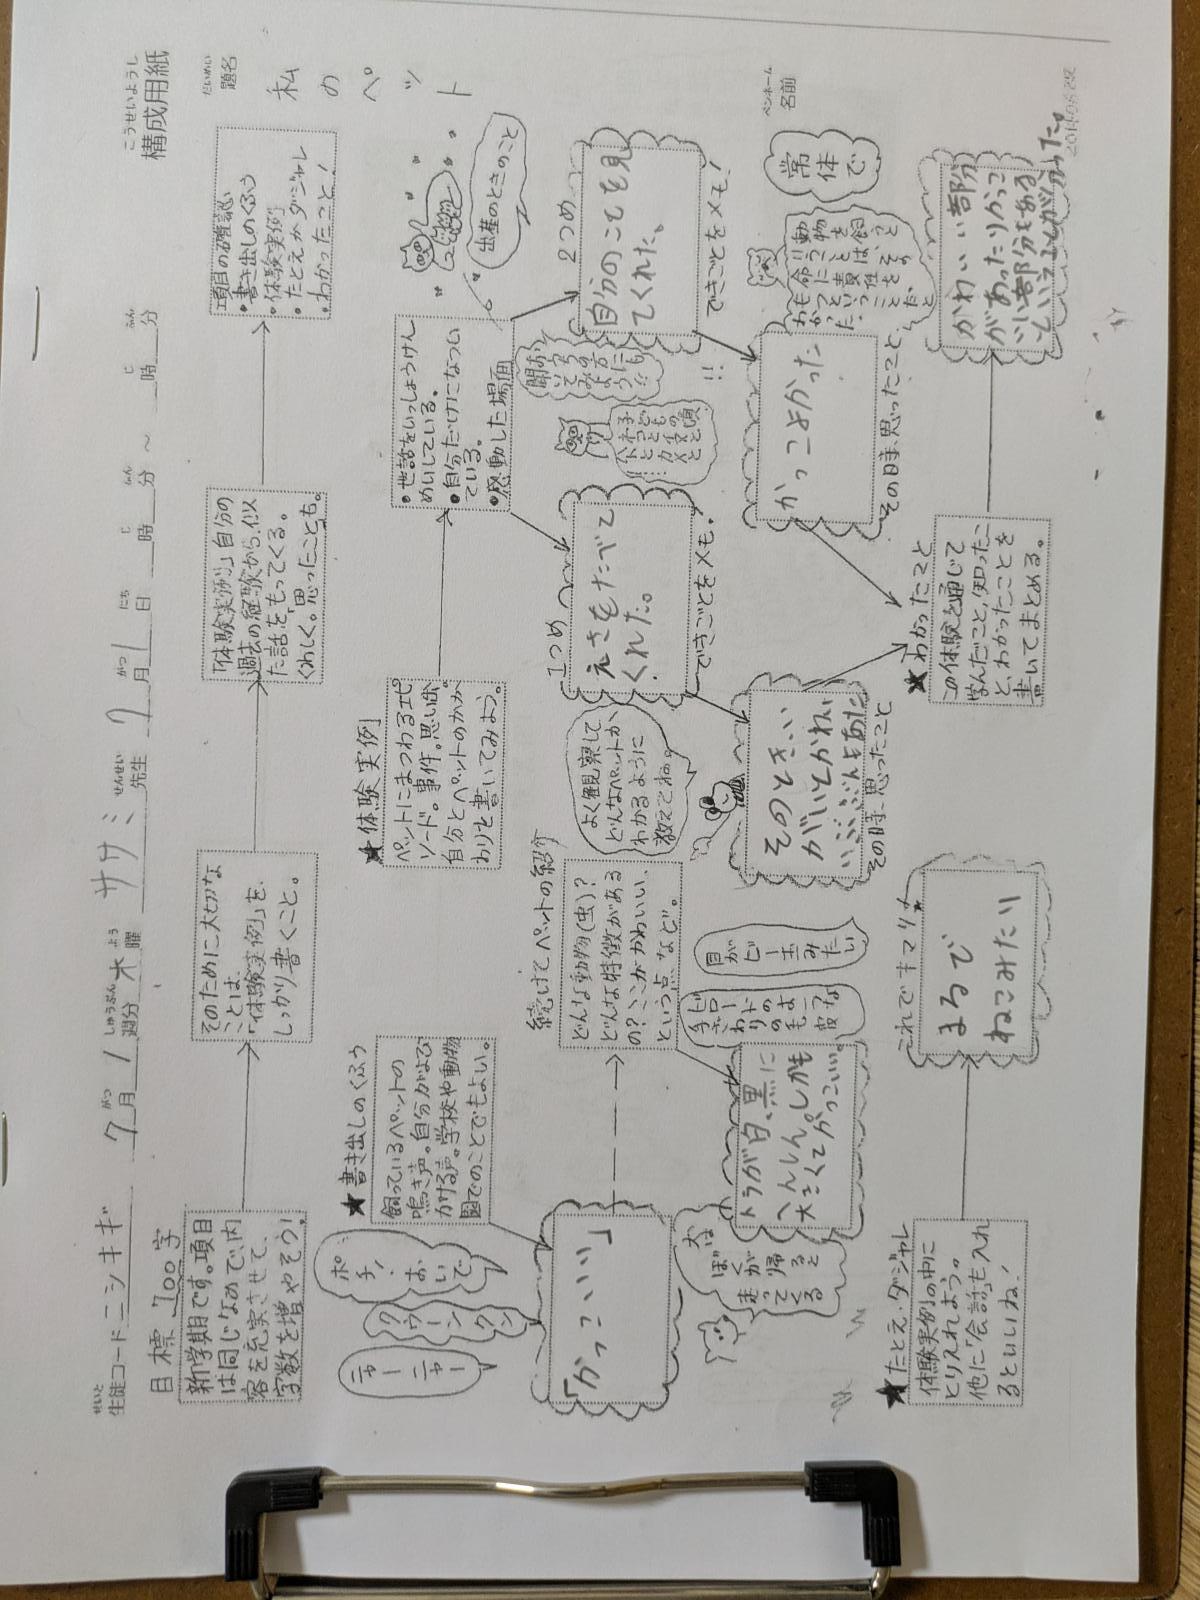 構成用紙
こうせいようし
生徒コード ニシキギ 7月1週分 木曜 ササミ先生 7月1日 時 分 ～ 時 分
題名
だいめい
私のペット
目標 700字
新学期です。項目
は同じなので、内
容を充実させて、
字数を増やそう!
そのために大切な
ことは、
「体験実例」を、
しっかり書くこと。
「体験実例」自分の
過去の経験から、似
た話をもってくる。
くわしく。思ったことも。
項目の確認
・書き出しのくふう
・体験実例
・たとえかダジャレ
・わかったこと!
★書き出しのくふう
飼っているペットの
鳴き声。自分がよび
かける声。学校や動物
園でのことでもよい。
ポチ!
おいで
クウーン
クン
ニャー
ニャー
「かっこいい」
続けてペットの紹介
どんな動物(虫)?
どんな特徴がある
の?ここがかわいい、
という点など。
よく観察して
どんなペットか、
わかるように
教えてね。
目が
ビー玉
みたい
トラが白、黒に
へんしん。しかも
大きくてかっこいい。
犬は
ぼくが
帰ると
走って
くる
★体験実例
ペットにまつわるエピ
ソード。事件。思い出。
自分とペットのかか
わりを書いてみよう。
・世話をいっしょうけん
めいしている。
・自分だけになつい
ている。
・感動した場面
出産のときのこと
1つめ
えさをたべて
くれた。
できごとをメモ。
そのときいい
がいとかわい
いぶぶんもあた
その時、思ったこと
2つめ
自分のことを見
てくれた。
できごとをメモ!
!!
かっこよかった
その時、思ったこと
★たとえ・ダジャレ
体験実例の中に
とり入れよう。
他に「会話」も入れ
るといいね!
これでキマリ!
まるで
ねこみたい
★わかったこと
この体験を通じて
学んだこと、知ったこ
と、わかったことを
書いてまとめる。
かわいい部分
があったりかっこ
いい部分もある
ということが分かった。
常体で
ペンネーム
名前